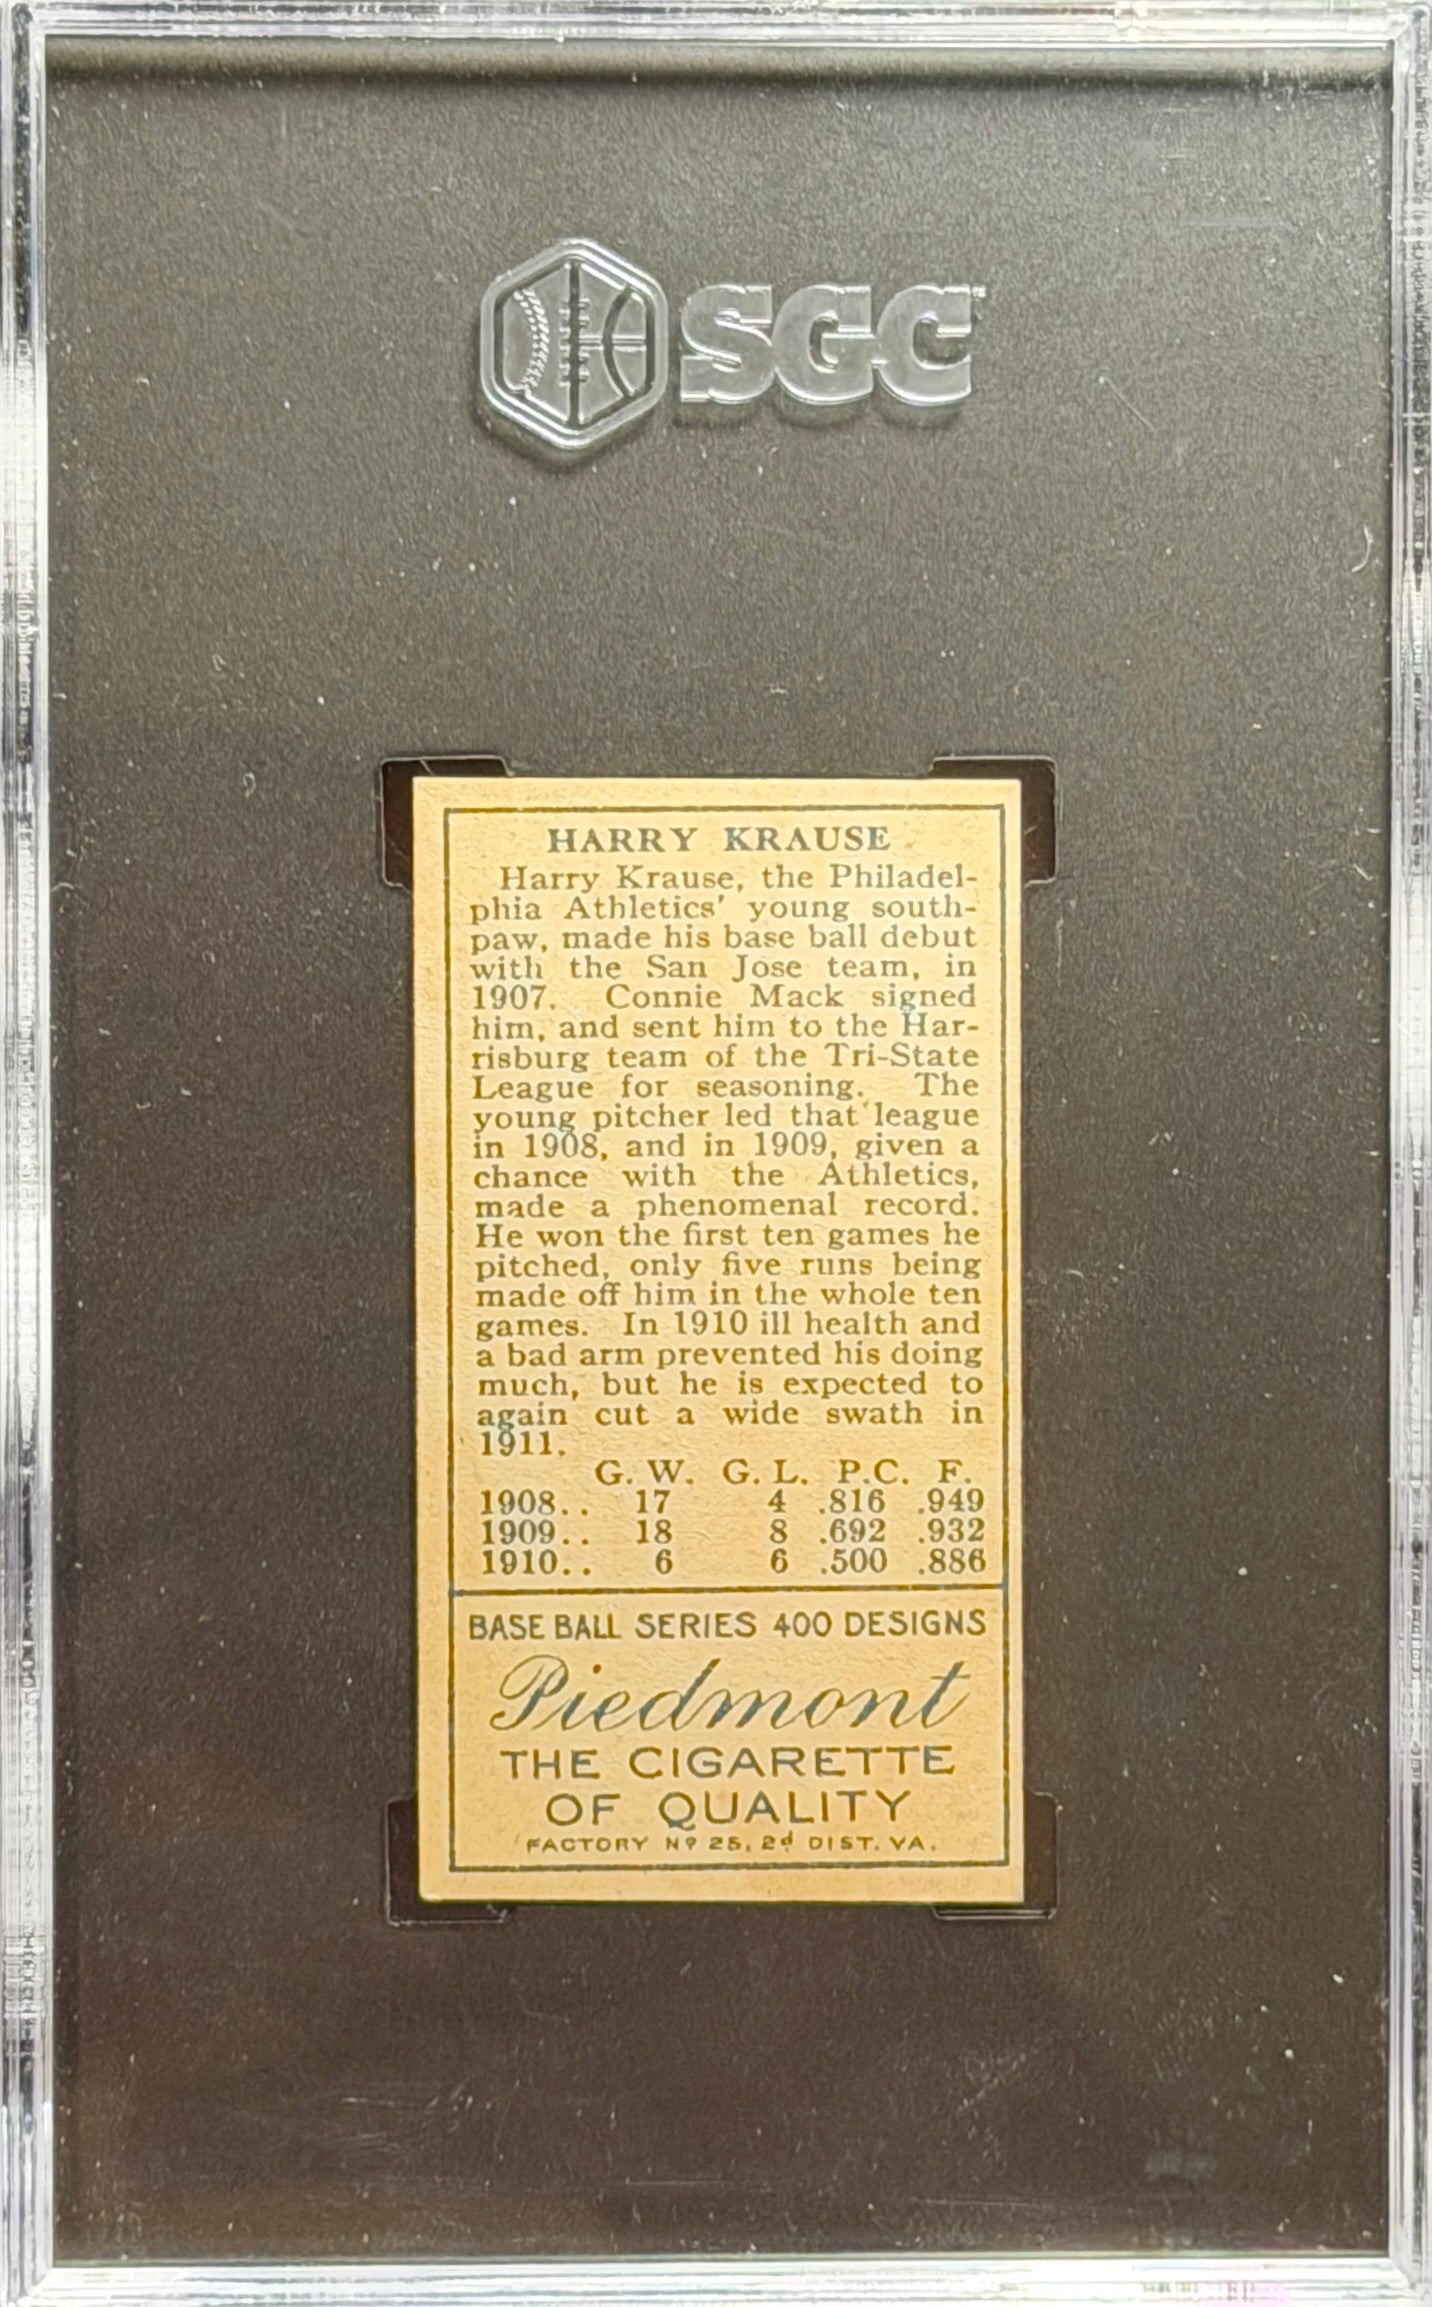 SGC
HARRY KRAUSE
Harry Krause, the Philadel-
phia Athletics' young south-
paw, made his base ball debut
with the San Jose team, in
1907. Connie Mack signed
him, and sent him to the Har-
risburg team of the Tri-State
League for seasoning. The
young pitcher led that league
in 1908, and in 1909, given a
chance with the Athletics,
made a phenomenal record.
He won the first ten games he
pitched, only five runs being
made off him in the whole ten
games. In 1910 ill health and
a bad arm prevented his doing
much, but he is expected to
again cut a wide swath in
1911.
G. W. G. L. P.C. F.
1908.. 17 4 .816 .949
1909.. 18 8 .692 .932
1910.. 6 6 .500 .886
BASE BALL SERIES 400 DESIGNS
Piedmont
THE CIGARETTE
OF QUALITY
FACTORY Nº 25, 2d DIST. VA.